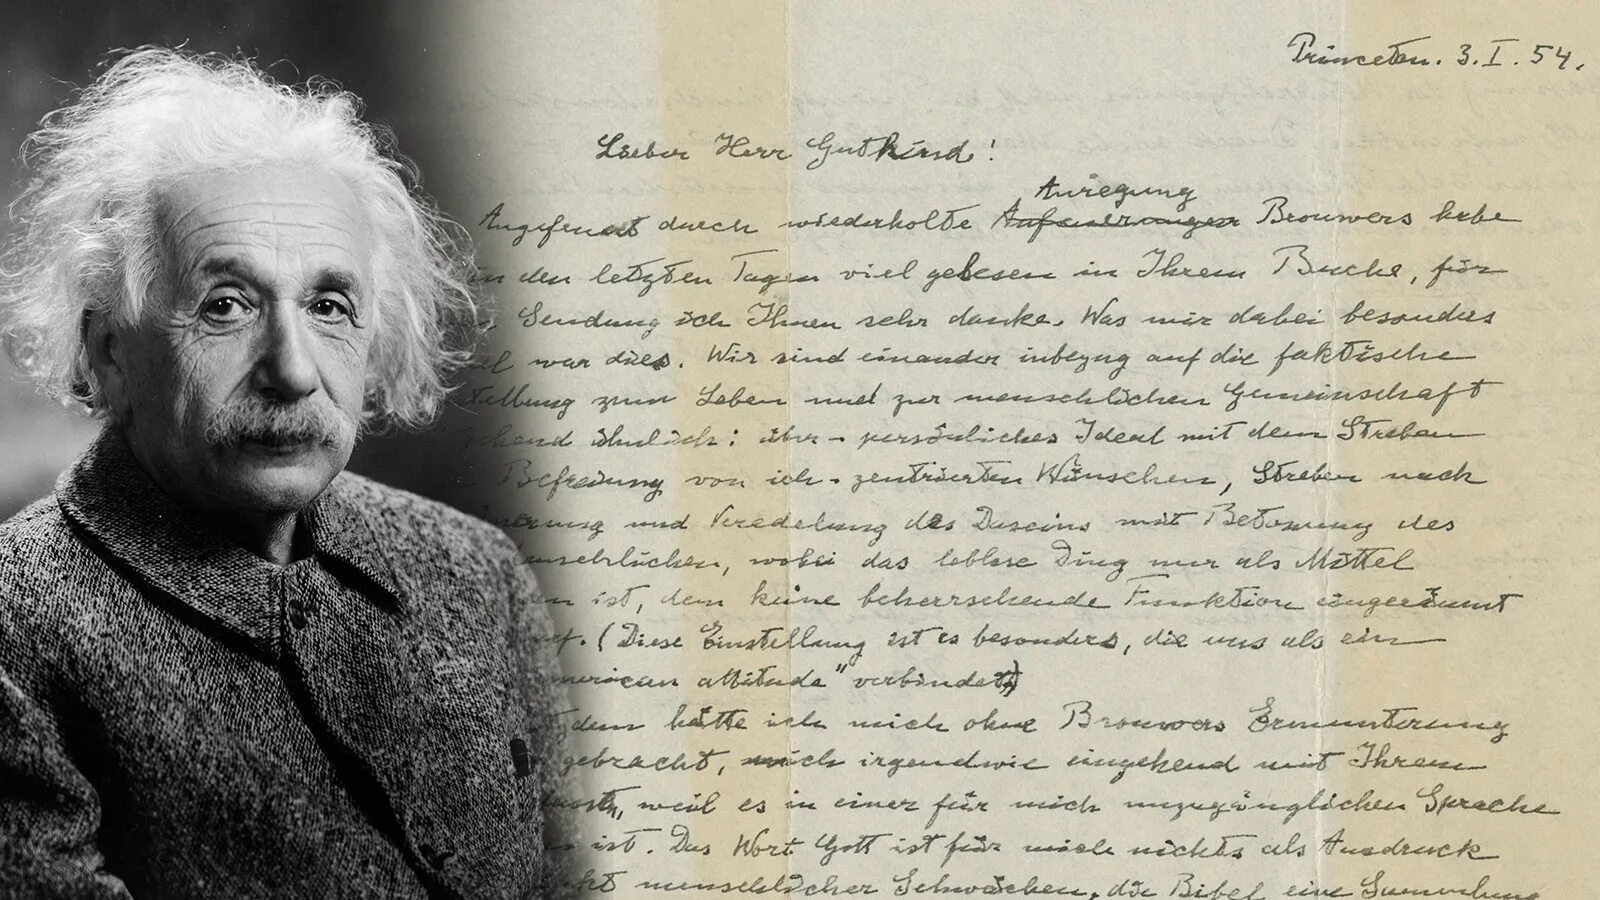 Princeton. 3. I. 54.
Lieber Herr Gutkind!
Anregung
Angefeuert durch wiederholte Aufeuerungen Brouwers habe
in den letzten Tagen viel gelesen in Ihrem Buche, für
Sendung ich Ihnen sehr danke. Was mir dabei besonders
war dies. Wir sind einander inbezug auf die faktische
tellung zum Leben und zur menschlichen Gemeinschaft
gehend ähnlich: über-persönliches Ideal mit dem Streben
Befreiung von ich-zentrierten Wünschen, Streben nach
nerung und Veredelung des Daseins mit Betonung des
enschlichen, wobei das leblose Ding nur als Mittel
en ist, dem keine beherrschende Funktion eingeräumt
rf. (Diese Einstellung ist es besonders, die uns als ein
merican attitude" verbindet)
tzdem hätte ich mich ohne Brouwers Ermunterung
gebracht, mich irgendwie eingehend mit Ihrem
weil es in einer für mich unzugänglichen Sprache
ist. Das Wort Gott ist für mich nichts als Ausdruck
menschlicher Schwächen, die Bibel eine Sammlung